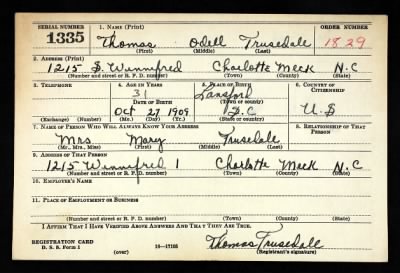 SERIAL NUMBER 1. NAME (Print) ORDER NUMBER
1335 Thomas Odell Trusedale 1829
(First) (Middle) (Last)
2. ADDRESS (Print)
1215 S. Winnifred Charlotte Meck N.C
(Number and street or R. F. D. number) (Town) (County) (State)
3. TELEPHONE 4. AGE IN YEARS 5. PLACE OF BIRTH 6. COUNTRY OF CITIZENSHIP
31 Lansford
DATE OF BIRTH (Town or county)
Oct 27 1909 S.C. U.S
(Exchange) (Number) (Mo.) (Day) (Yr.) (State or country)
7. NAME OF PERSON WHO WILL ALWAYS KNOW YOUR ADDRESS 8. RELATIONSHIP OF THAT PERSON
Mrs Mary Trusedale
(Mr., Mrs., Miss) (First) (Middle) (Last)
9. ADDRESS OF THAT PERSON
1215 Winnifred 1 Charlotte Meck N.C
(Number and street or R. F. D. number) (Town) (County) (State)
10. EMPLOYER'S NAME
11. PLACE OF EMPLOYMENT OR BUSINESS
(Number and street or R. F. D. number) (Town) (County) (State)
I AFFIRM THAT I HAVE VERIFIED ABOVE ANSWERS AND THAT THEY ARE TRUE.
REGISTRATION CARD
D. S. S. Form 1 16—17105 Thomas Trusedale
(over) (Registrant's signature)